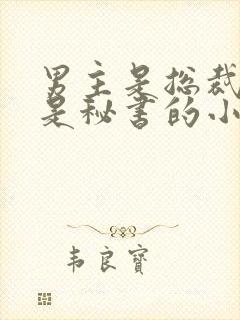 男主是总裁
是秘书的小
韦良宝